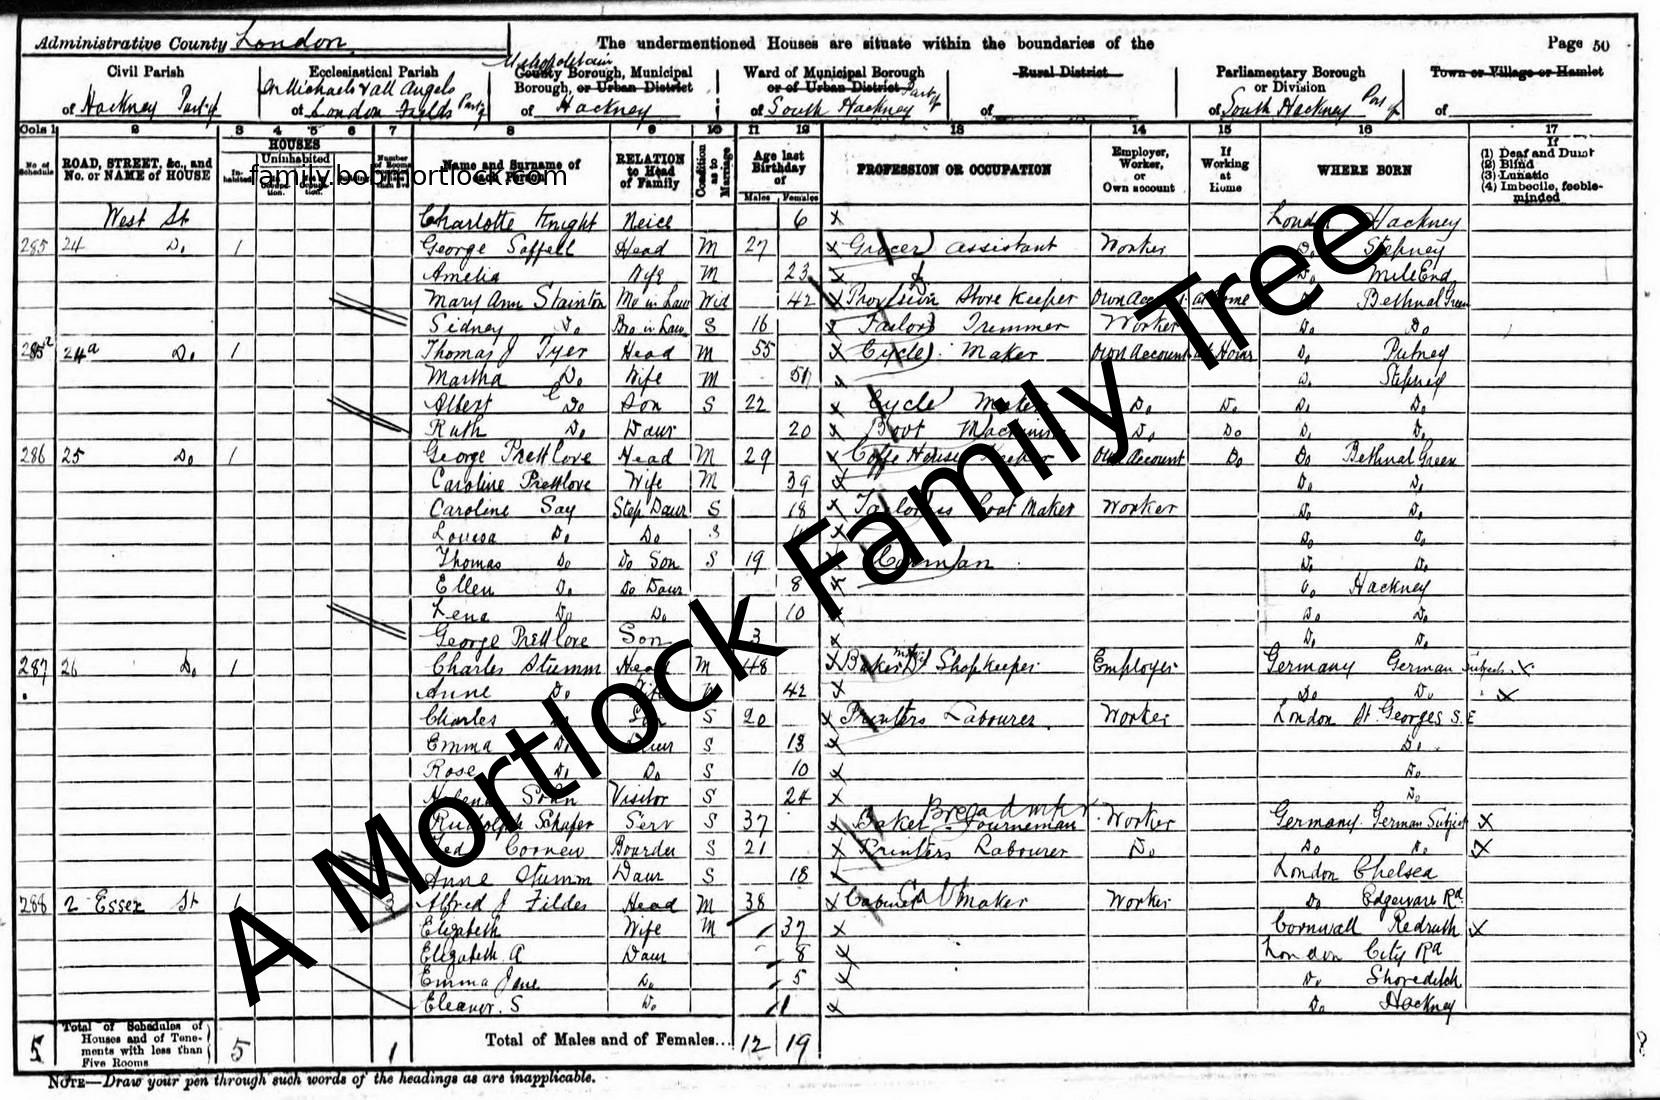 Administrative County London
The undermentioned Houses are situate within the boundaries of the
Page 50
Civil Parish
of Hackney Part of
Ecclesiastical Parish
St Michaels & All Angels
of London Fields Part of
Metropolitan
County Borough, Municipal
Borough, or Urban District
of Hackney
Ward of Municipal Borough
or of Urban District Part of
of South Hackney
Rural District
of
Parliamentary Borough
or Division
of South Hackney Part of
Town or Village or Hamlet
of
Cols 1 2 3 4 5 6 7 8 9 10 11 12 13 14 15 16 17
No. of Schedule
ROAD, STREET, &c., and
No. or NAME of HOUSE
HOUSES
Uninhabited
Name and Surname of
each Person
RELATION
to Head
of Family
Condition as to Marriage
Age last
Birthday
of
Males Females
PROFESSION OR OCCUPATION
Employer,
Worker,
or
Own account
If
Working
at
Home
WHERE BORN
If
(1) Deaf and Dumb
(2) Blind
(3) Lunatic
(4) Imbecile, feeble-
minded
family.bobmortlock.com
West St Charlotte Knight Neice 6 London Hackney
285 24 Do 1 George Saffell Head M 27 Grocer assistant Worker Do Stepney
Amelia Wife M 23 Do Mile End
Mary Ann Stainton Mo in Law Wid 42 Provision Store Keeper Own Account at Home Bethnal Green
Sidney Do Bro in Law S 16 Tailors Trimmer Worker Do Do
285a 24a Do 1 Thomas J Tyer Head M 55 Cycle Maker Own Account At Home Do Putney
Martha Do Wife M Do Stepney
Albert E Do Son S 22 Cycle Maker Do Do Do Do
Ruth Do Daur 20 Boot Machinist Do Do Do Do
286 25 Do 1 George Prettlove Head M 29 Coffe House Keeper Own Account Do Do Bethnal Green
Caroline Prettlove Wife M 39 Do Do
Caroline Say Step Daur S 18 Tailoress Coat Maker Worker Do Do
Louisa Do Do S Do Do
Thomas Do Do Son S 19 Carman Do Do
Ellen Do Do Daur 8 Do Hackney
Lena Do Do 10 Do Do
George Prettlove Son 3 Do Do
287 26 Do 1 Charles Stumm Head M 48 Baker Shopkeeper Employer Germany German Subject X
Anne Do Wife M 42 Do Do X
Charles Do Son S 20 Printers Labourer Worker London St Georges S.E
Emma Do Daur S 13 Do
Rose Do Do S 10 Do
Visitor S 24 Do
Rudolph Schafer Serv S 37 Baker Breadmaker Journeman Worker Germany German Subject X
Boarder S 21 Printers Labourer Do Do Do X
Anne Stumm Daur S 18 London Chelsea
288 2 Essex St 1 3 Alfred J Fildes Head M 38 Cabinet Maker Worker Do Edgeware Rd
Elizabeth Wife M 37 Cornwall Redruth X
Elizabeth A Daur 8 London City Rd
Emma Jane Do 5 Do Shoreditch
Eleanor. S Do 1 Do Hackney
5
Total of Schedules of
Houses and of Tene-
ments with less than
Five Rooms
5 1 Total of Males and of Females... 12 19
NOTE—Draw your pen through such words of the headings as are inapplicable.
A Mortlock Family Tree